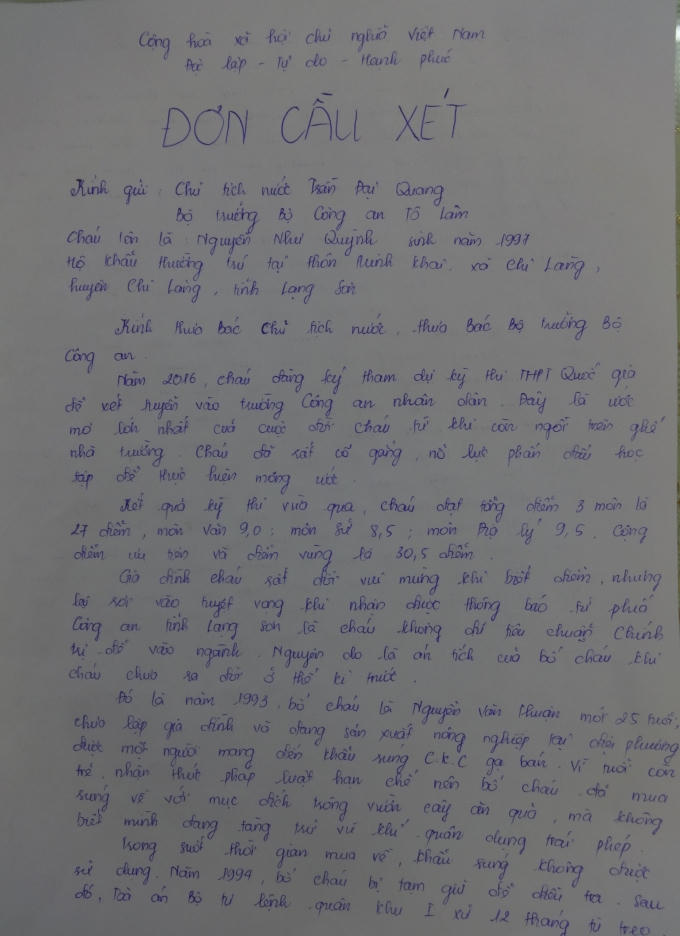 Cộng hoà xã hội chủ nghĩa Việt Nam
Độc lập - Tự do - Hạnh phúc
ĐƠN CẦU XÉT
Kính gửi : Chủ tịch nước Trần Đại Quang
Bộ trưởng Bộ Công an Tô Lâm
Cháu tên là : Nguyễn Như Quỳnh sinh năm 1997
Hộ khẩu thường trú tại thôn Minh khai, xã Chi Lăng,
huyện Chi Lăng, tỉnh Lạng Sơn
Kính thưa Bác Chủ tịch nước, thưa Bác Bộ trưởng Bộ
Công an.
Năm 2016, cháu đăng ký tham dự kỳ thi THPT Quốc gia
để xét tuyển vào trường Công an nhân dân. Đây là ước
mơ lớn nhất của cuộc đời cháu từ khi còn ngồi trên ghế
nhà trường. Cháu đã rất cố gắng, nỗ lực phấn đấu học
tập để thực hiện mong ước.
Kết quả kỳ thi vừa qua, cháu đạt tổng điểm 3 môn là
27 điểm, môn Văn 9,0 ; môn Sử 8,5 ; môn Địa lý 9,5. Cộng
điểm ưu tiên và điểm vùng là 30,5 điểm.
Gia đình cháu rất đỗi vui mừng khi biết điểm, nhưng
lại rơi vào tuyệt vọng khi nhận được thông báo từ phía
Công an tỉnh Lạng Sơn là cháu không đủ tiêu chuẩn Chính
trị để vào ngành. Nguyên do là án tích của bố cháu khi
cháu chưa ra đời ở thế kỉ trước.
Đó là năm 1993, bố cháu là Nguyễn Văn Thuận mới 25 tuổi,
chưa lập gia đình và đang sản xuất nông nghiệp tại địa phương
được một người mang đến khẩu súng C.K.C gạ bán. Vì tuổi còn
trẻ, nhận thức pháp luật hạn chế nên bố cháu đã mua
súng về với mục đích trông vườn cây ăn quả, mà không
biết mình đang tàng trữ vũ khí quân dụng trái phép.
Trong suốt thời gian mua về, khẩu súng không được
sử dụng. Năm 1994, bố cháu bị tạm giữ để điều tra. Sau
đó, Toà án Bộ tư lệnh quân khu I xử 12 tháng tù treo.